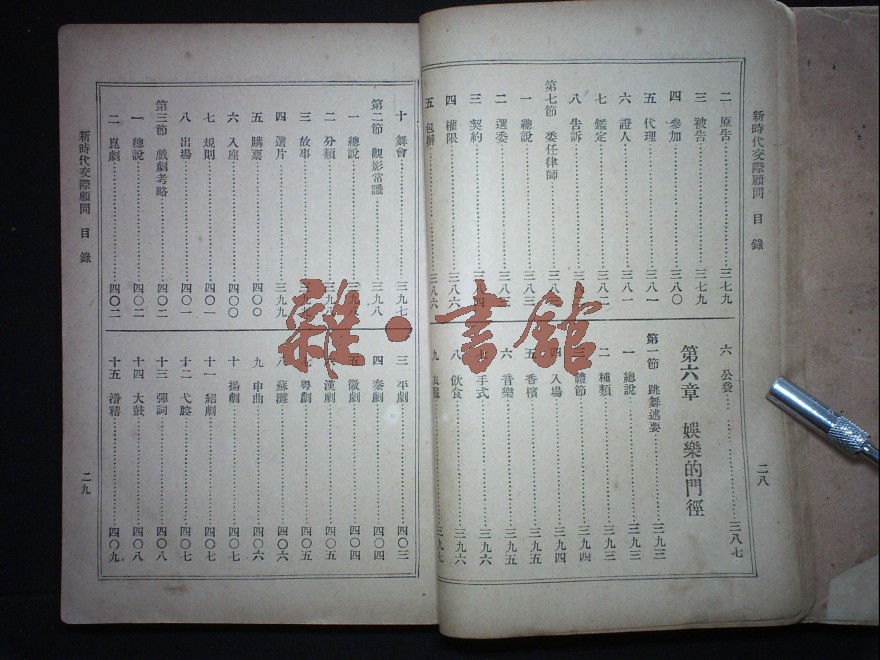 新時代交際顧問 目錄
二 原告 三七九
三 被告 三七九
四 參加 三八〇
五 代理 三八一
六 證人 三八一
七 鑑定 三八二
八 告訴
第七節 委任律師
一 總說 三八三
二 選委
三 契約
四 權限 三八六
五 包辦 三八六
六 公費 三八七
第六章 娛樂的門徑
第一節 跳舞述要 三九三
一 總說 三九三
二 種類 三九三
體節 三九四
入場 三九四
五 香檳 三九五
六 音樂 三九五
手式 三九六
八 飲食 三九六
九 三九七
二八
十 舞會 三九七
第二節 觀影常識 三九八
一 總說 三九八
二 分類 三九八
三 故事 三九九
四 選片 三九九
五 購票 四〇〇
六 入座 四〇〇
七 規則 四〇一
八 出場 四〇一
第三節 戲劇考略 四〇二
一 總說 四〇二
二 崑劇 四〇二
新時代交際顧問 目錄
三 平劇 四〇三
四 秦劇 四〇四
五 徽劇 四〇四
漢劇 四〇五
粵劇 四〇五
八 蘇灘 四〇六
九 申曲 四〇六
十 揚劇 四〇七
十一 紹劇 四〇七
十二 弋腔 四〇七
十三 彈詞 四〇八
十四 大鼓 四〇八
十五 滑稽 四〇九
二九
雜·書館